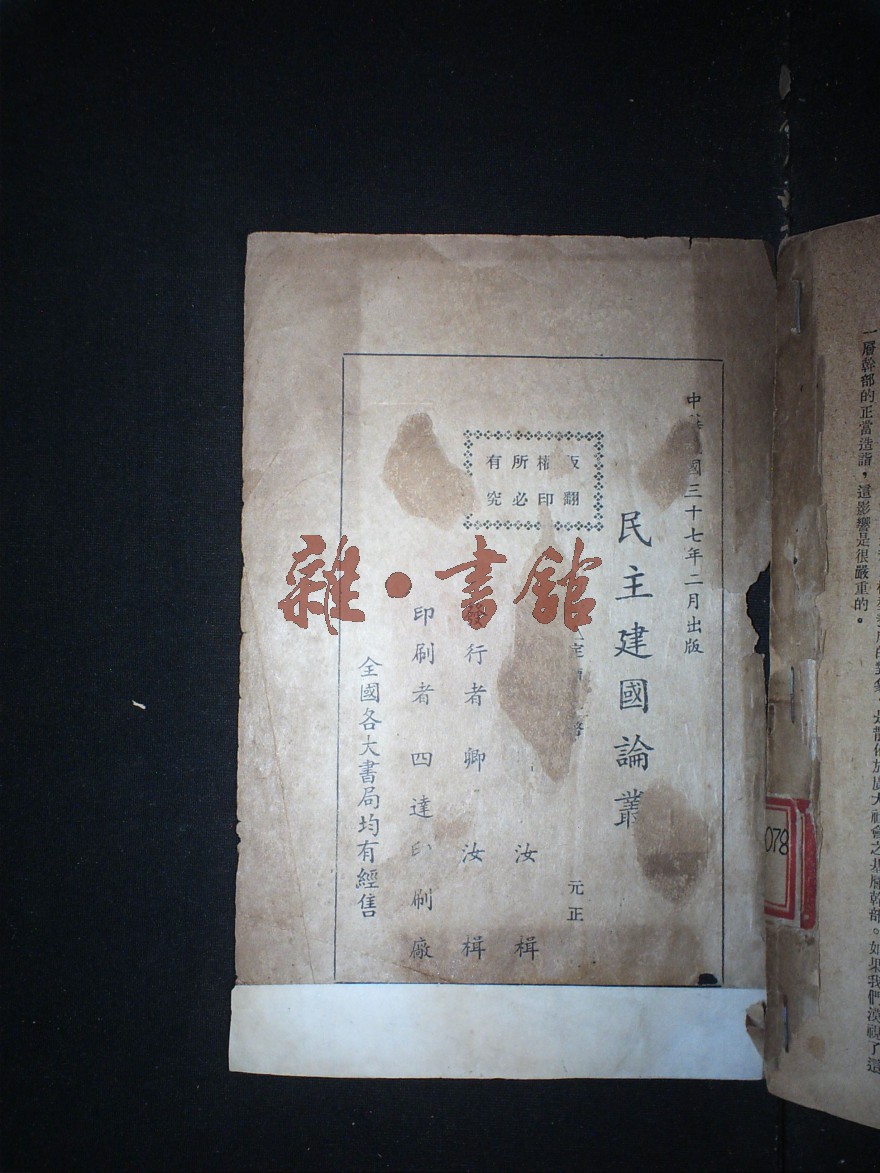 中 國三十七年二月出版
民主建國論叢
版權所有
翻印必究
定
元正
汝楫
發行者 卿汝楫
印刷者 四達印刷廠
全國各大書局均有經售
雜·書館
078
一層幹部的正當造詣，這影響是很嚴重的。
是散佈於廣大社會之基層幹部。如果我們漠視了這